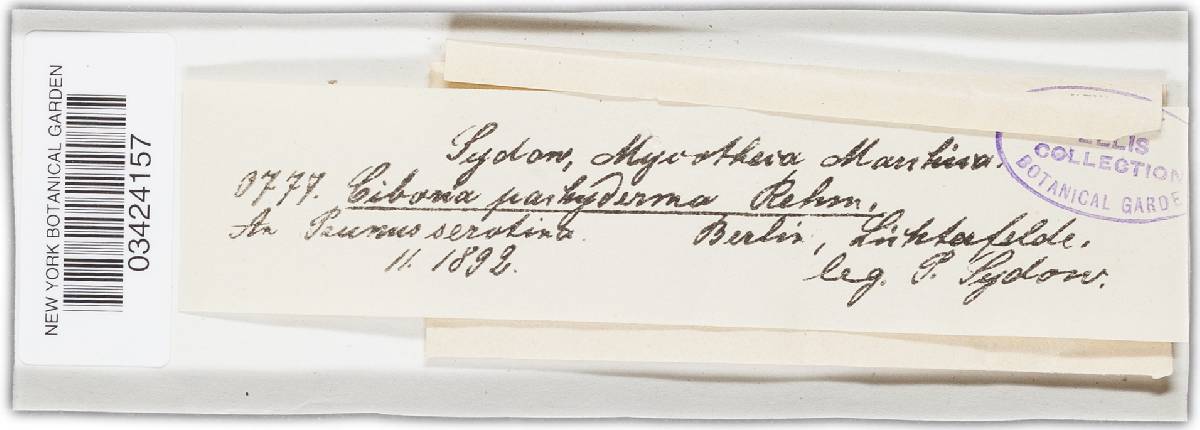 NEW YORK BOTANICAL GARDEN
03424157
Sydow, Mycotheca Marchica.
3777. Ciboria pachyderma Rehm.
An Prunus serotina. Berlin, Lichterfelde.
11. 1892. leg. P. Sydow.
ELLIS
COLLECTION
BOTANICAL GARDE